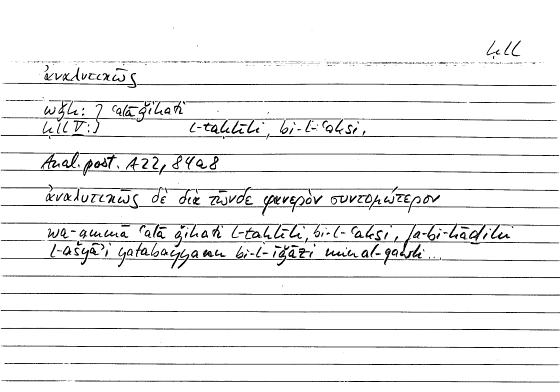 ḥll
ἀναλυτικῶς
wǧh: } ʿalā ǧihati
ḥll V: } t-taḥlīli, bi-l-ʿaksi,
Anal. post. A22, 84a8
ἀναλυτικῶς δὲ διὰ τῶνδε φανερὸν συντομώτερον
wa-ammā ʿalā ǧihati t-taḥlīli, bi-l-ʿaksi, fa-bi-hāḏihi
l-ašyāʾi yatabayyanu bi-l-īǧāzi mina l-qawli...